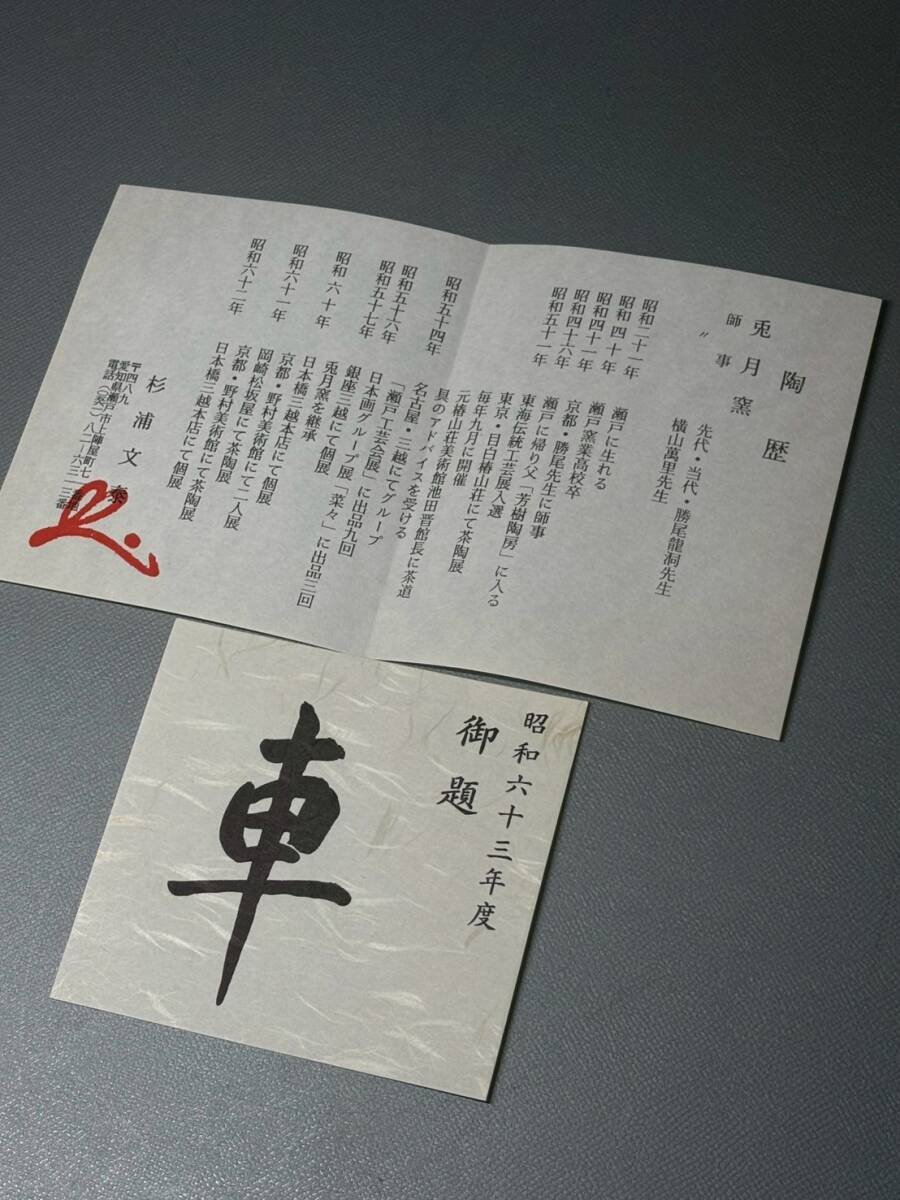 陶歴
兎月窯
師事　先代・当代・勝尾龍洞先生
〃　横山萬里先生
昭和二十一年　瀬戸に生れる
昭和四十年　瀬戸窯業高校卒
昭和四十一年　京都・勝尾先生に師事
昭和四十六年　瀬戸に帰り父「芳樹陶房」に入る
昭和五十一年　東海伝統工芸展入選
東京・目白椿山荘にて茶陶展
毎年九月に開催
元椿山荘美術館池田晋館長に茶道
具のアドバイスを受ける
昭和五十四年　名古屋・三越にてグループ
昭和五十六年　「瀬戸工芸会展」に出品九回
昭和五十七年　日本画グループ展「菜々」に出品三回
銀座三越にて個展
昭和六十年　兎月窯を継承
日本橋三越本店にて個展
昭和六十一年　京都・野村美術館にて二人展
岡崎松坂屋にて茶陶展
昭和六十二年　京都・野村美術館にて茶陶展
日本橋三越本店にて個展
杉浦文泰
〒四八九
愛知県瀬戸市上陣屋町七
電話
昭和六十三年度
御題
車